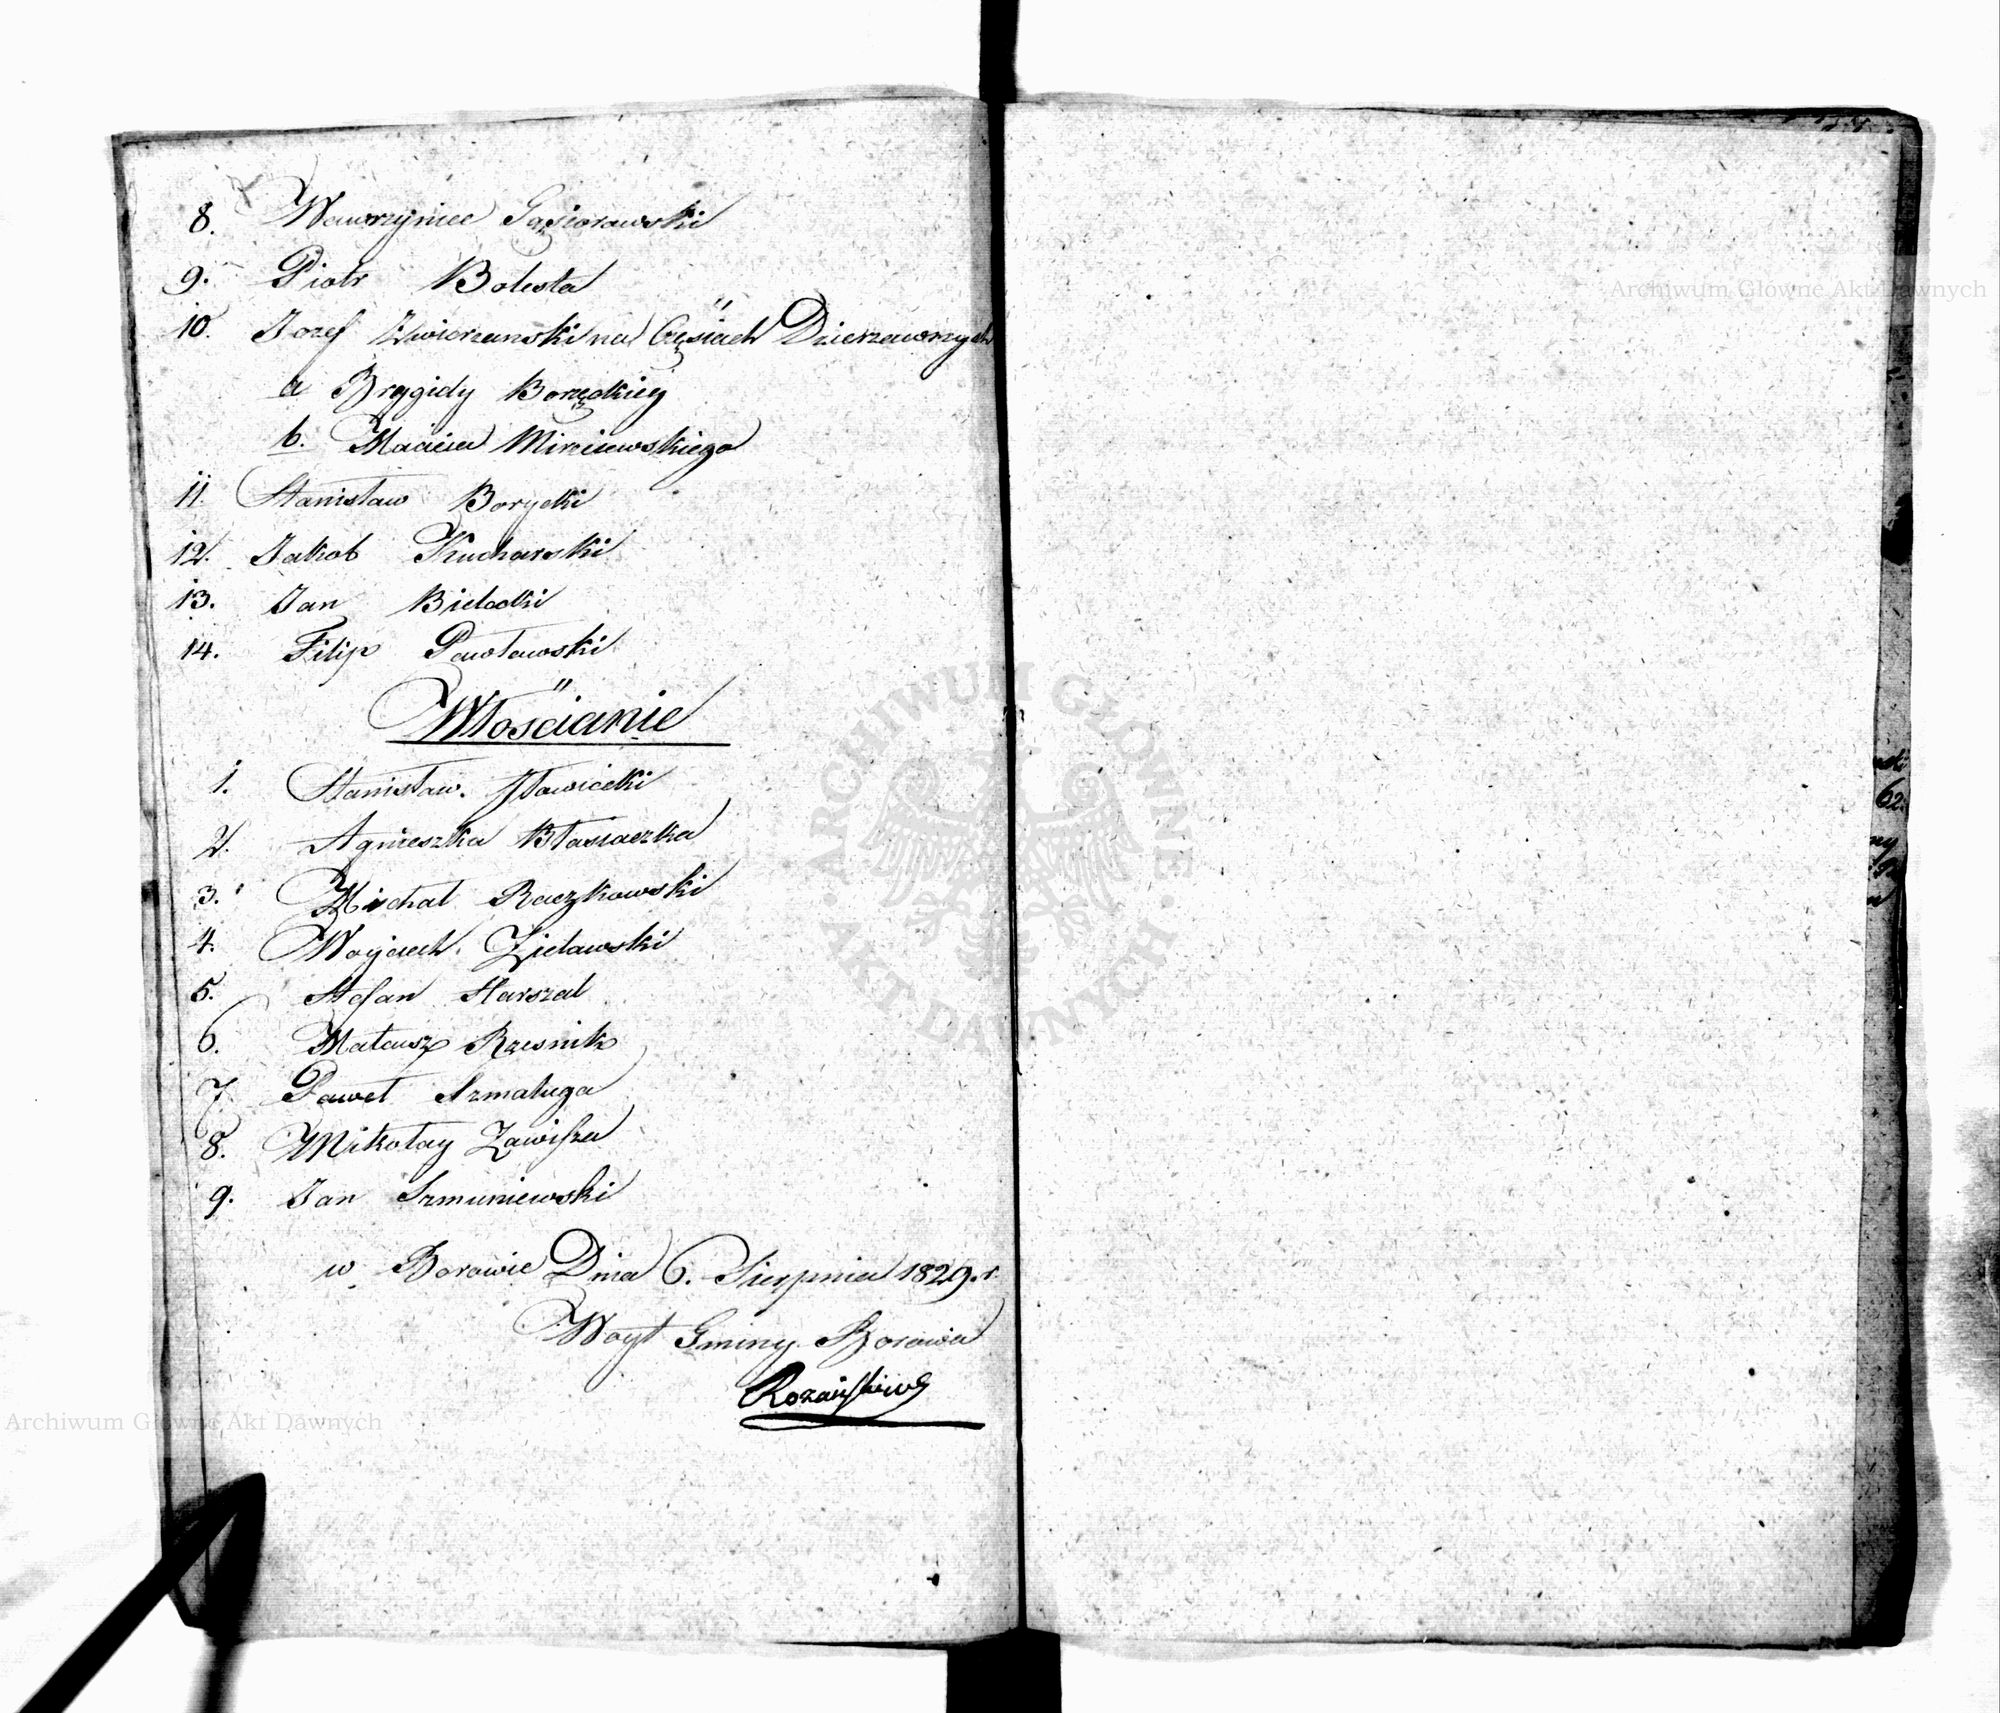 8. Wawrzyniec Gąsiorowski
9. Piotr Bolesta
10. Jozef Zwierzanski na Częściach Dzierzawnych
a Brygidy Borzęckiey
b. Macieia Mirzciewskiego
11. Stanisław Borycki
12. Jakob Kucharski
13. Jan Bielecki
14. Filip Pawłowski
Włościanie
1. Stanisław Sławicki
2. Agnieszka Błasiaczka
3. Michał Raczkowski
4. Woyciech Zielawski
5. Stefan Harszal
6. Mateusz Rzesnik
7. Paweł Szmatuga
8. Mikołay Zawisza
9. Jan Szmuniewski
w Borowie Dnia 6. Sierpnia 1829. r.
Woyt Gminy Borowia
ARCHIWUM GŁÓWNE AKT DAWNYCH
Archiwum Główne Akt Dawnych
Archiwum Główne Akt Dawnych